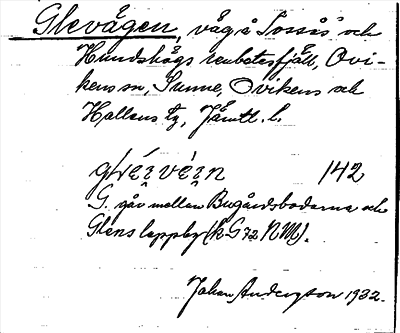 Glevägen, väg å Sossås och
Hundshögs renbetesfjäll, Ovi-
kens sn, Sunne, Ovikens och
Hallens tg, Jämtl. l.
142
G. går mellan Bugårdsbodarna och
Glens lappby (k G 72 NM).
Johan Andersson 1932.